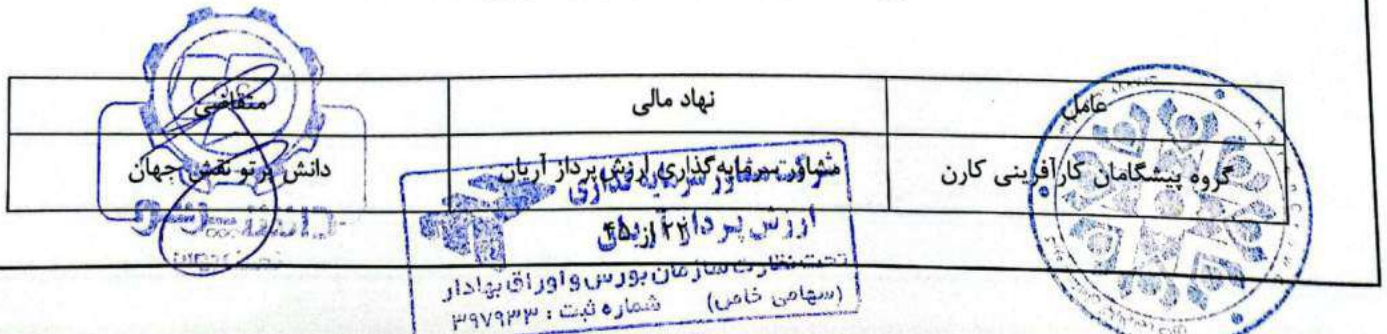 عامل نهاد مالی متقاضی
گروه پیشگامان کارآفرینی کارن مشاور سرمایه گذاری ارزش پرداز آریان دانش پرتو نقش جهان
۲۲ از ۴۵
ارزش پرداز آریان
تحت نظارت سازمان بورس و اوراق بهادار
(سهامی خاص) شماره ثبت : ۳۹۷۹۳۳